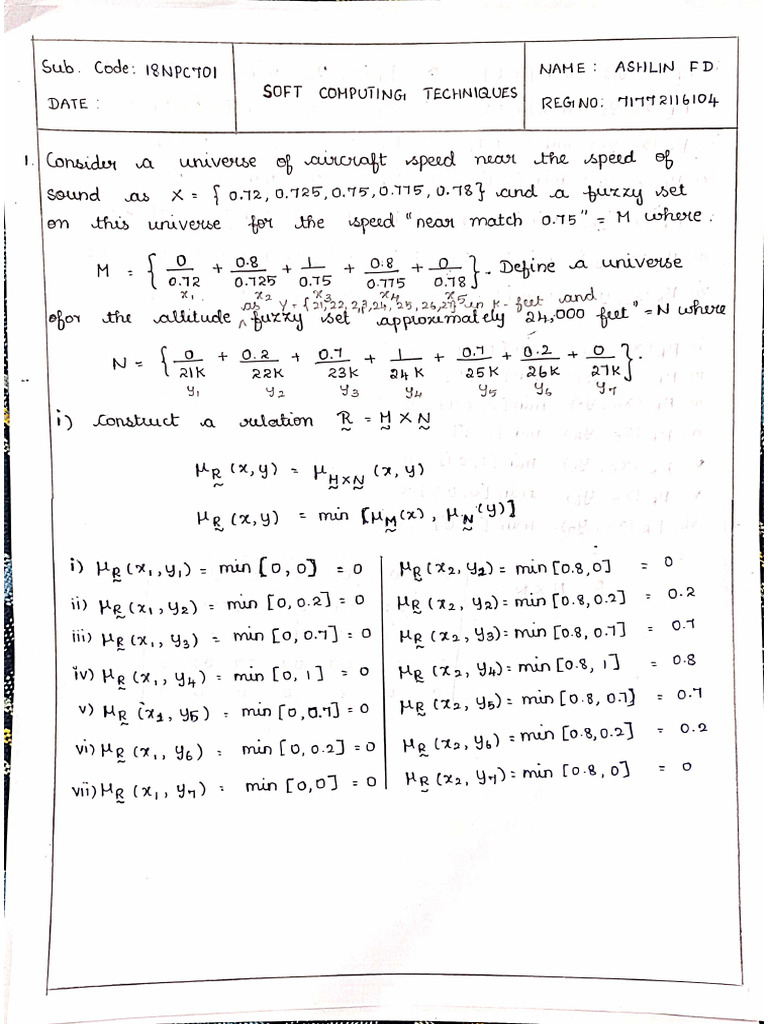 Sub. Code: 18NPC701
DATE :
SOFT COMPUTING TECHNIQUES
NAME : ASHLIN F D
REG NO: 71772116104
1. Consider a universe of aircraft speed near the speed of
sound as X = { 0.72, 0.725, 0.75, 0.775, 0.78} and a fuzzy set
on this universe for the speed "near match 0.75" = M where.
M = { 0/0.72 + 0.8/0.725 + 1/0.75 + 0.8/0.775 + 0/0.78 }. Define a universe
x₁ x₂ x₃ x₄ x₅
as Y = {21, 22, 23, 24, 25, 26, 27} in k-feet and
for the altitude ^ fuzzy set approximately 24,000 feet" = N where
N = { 0/21K + 0.2/22K + 0.7/23K + 1/24K + 0.7/25K + 0.2/26K + 0/27K }.
y₁ y₂ y₃ y₄ y₅ y₆ y₇
i) Construct a relation R = M × N
μR (x,y) = μM×N (x,y)
μR (x,y) = min [μM(x), μN(y)]
i) μR (x₁, y₁) = min [0, 0] = 0
ii) μR (x₁, y₂) = min [0, 0.2] = 0
iii) μR (x₁, y₃) = min [0, 0.7] = 0
iv) μR (x₁, y₄) = min [0, 1] = 0
v) μR (x₁, y₅) = min [0, 0.7] = 0
vi) μR (x₁, y₆) = min [0, 0.2] = 0
vii) μR (x₁, y₇) = min [0,0] = 0
μR (x₂, y₁) = min [0.8,0] = 0
μR (x₂, y₂) = min [0.8, 0.2] = 0.2
μR (x₂, y₃) = min [0.8, 0.7] = 0.7
μR (x₂, y₄) = min [0.8, 1] = 0.8
μR (x₂, y₅) = min [0.8, 0.7] = 0.7
μR (x₂, y₆) = min [0.8, 0.2] = 0.2
μR (x₂, y₇) = min [0.8, 0] = 0